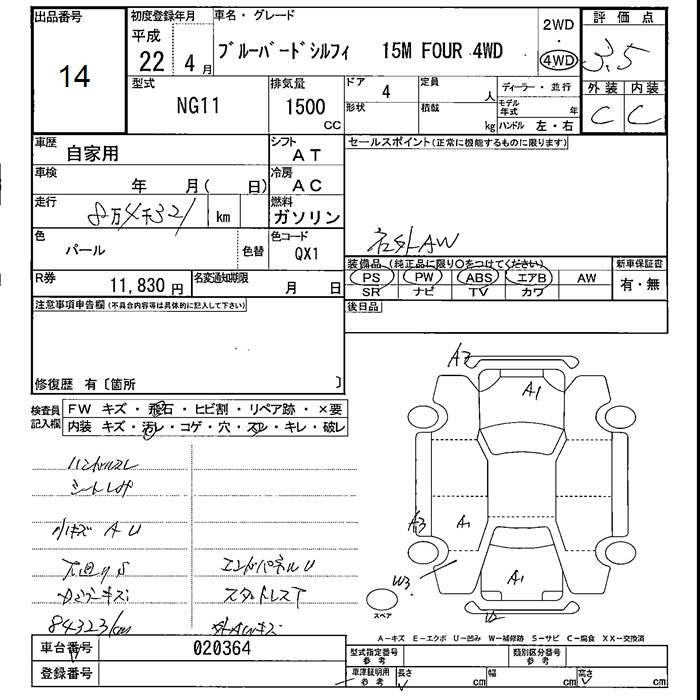 出品番号
14
初度登録年月
平成
22 4 月
車名・グレード
ブルーバードシルフィ 15M FOUR 4WD
2WD
4WD
評価点
3.5
外装 内装
C C
型式
NG11
排気量
1500
CC
ドア 4
形状
定員
人
積載
kg
ディーラー・並行
モデル年式 年
ハンドル 左・右
車歴
自家用
シフト
AT
セールスポイント(正常に機能するものに限ります)
社外AW
車検
年 月( 日)
冷房
AC
走行
8万4千321 km
燃料
ガソリン
色
パール
色替
色コード
QX1
装備品(純正品に限り○をつけてください)
PS PW ABS エアB AW
SR ナビ TV カワ
新車保証書
有・無
R券
11,830 円
名変通知期限
月 日
後日品
注意事項申告欄(不具合内容等は具体的に記入して下さい)
修復歴 有〔箇所 〕
検査員
記入欄
FW キズ・飛石・ヒビ割・リペア跡・×要
内装 キズ・汚レ・コゲ・穴・スレ・キレ・破レ
ハンドルスレ
小キズ AU
下廻りS
エンドパネルU
スタッドレスT
84323km
外AWキズ
A2
A1
A3
A1
A1
W3
スペア
A-キズ E-エクボ U-凹み W-補修跡 S-サビ C-腐食 XX-交換済
車台番号
020364
登録番号
型式指定番号
参考
類別区分番号
参考
車庫証明用
参考
長さ cm 幅 cm 高さ cm